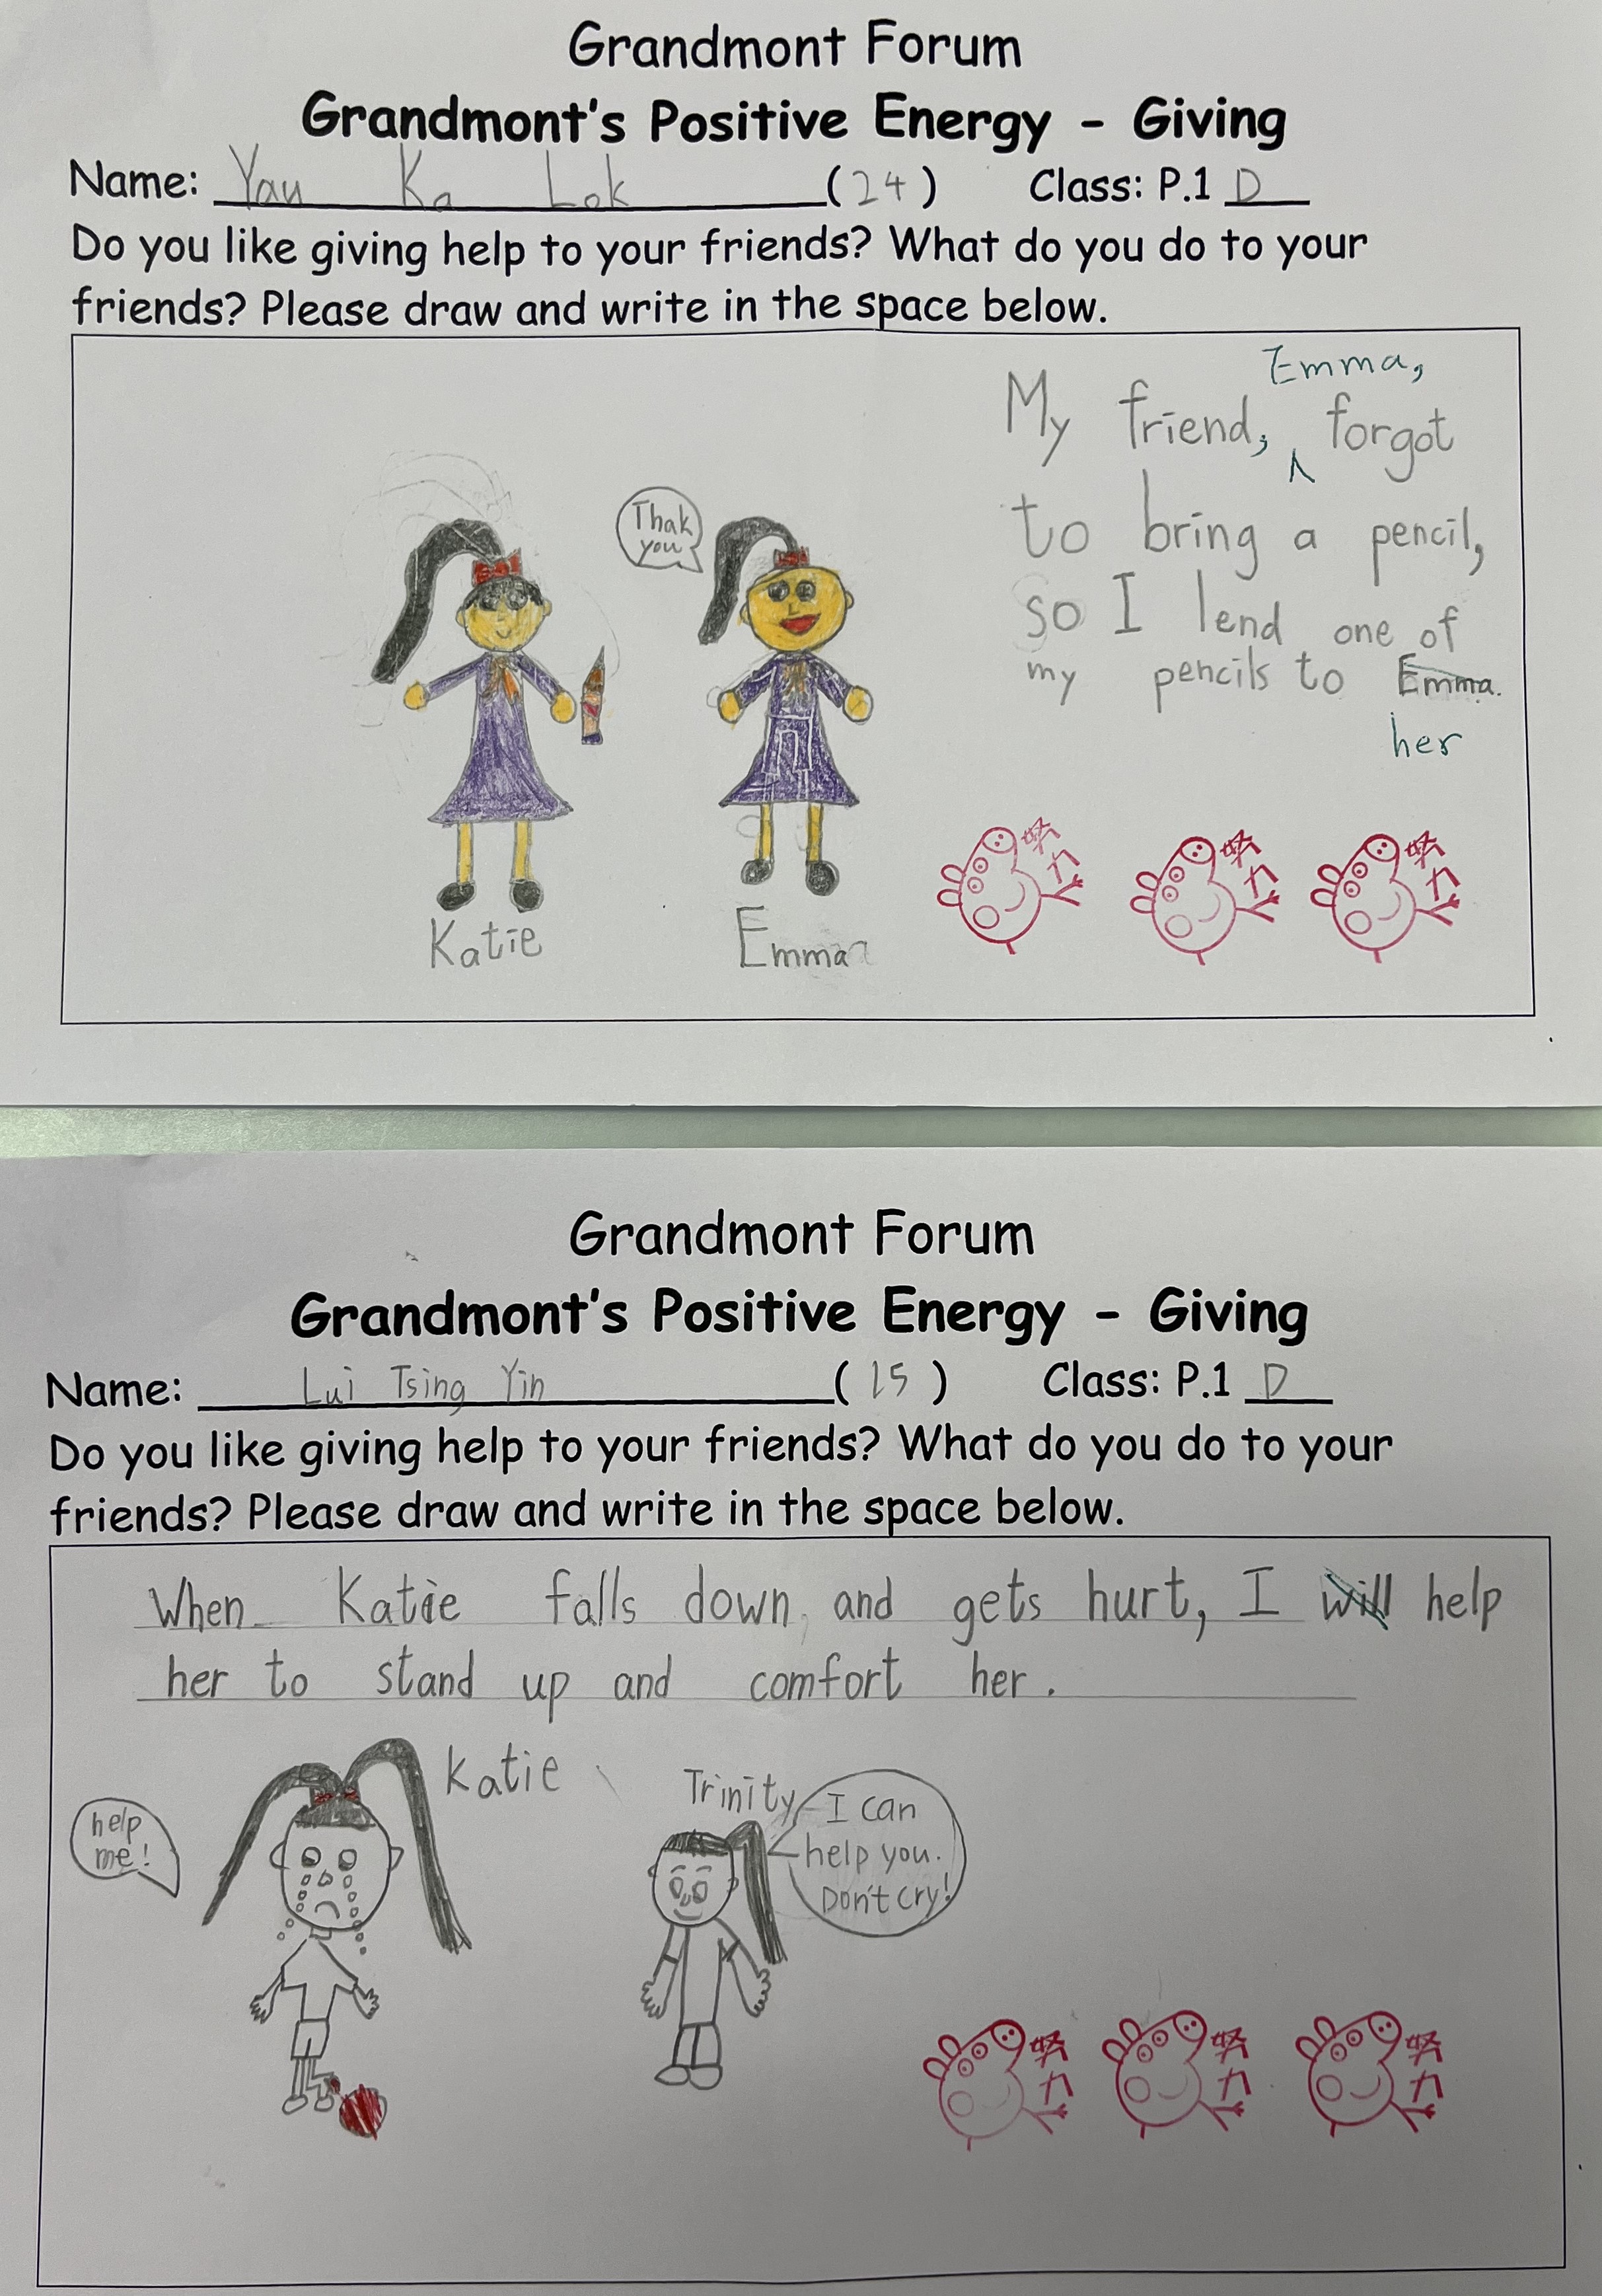 Grandmont Forum
Grandmont's Positive Energy - Giving
Name: Yau Ka Lok (24) Class: P.1 D
Do you like giving help to your friends? What do you do to your
friends? Please draw and write in the space below.
Emma,
My friend, forgot
to bring a pencil,
so I lend one of
my pencils to Emma.
her
Thak
you
Katie
Emma
努力
努力
努力
Grandmont Forum
Grandmont's Positive Energy - Giving
Name: Lui Tsing Yin (15) Class: P.1 D
Do you like giving help to your friends? What do you do to your
friends? Please draw and write in the space below.
When Katie falls down and gets hurt, I will help
her to stand up and comfort her.
Katie
Trinity
help
me!
I can
help you.
Don't cry!
努力
努力
努力